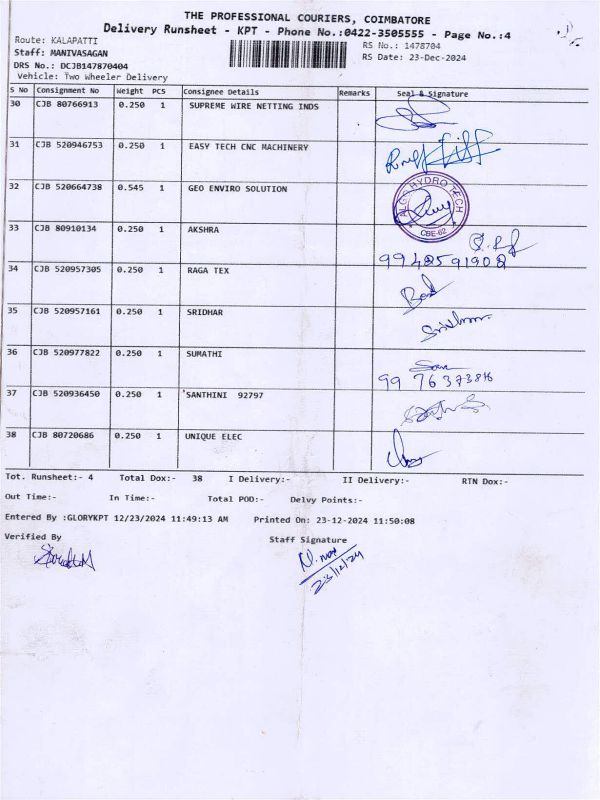 THE PROFESSIONAL COURIERS, COIMBATORE
Delivery Runsheet - KPT - Phone No.:0422-3505555 - Page No.:4
Route: KALAPATTI
RS No.: 1478704
Staff: MANIVASAGAN
RS Date: 23-Dec-2024
DRS No.: DCJB147870404
Vehicle: Two Wheeler Delivery
S No Consignment No Weight PCS Consignee Details Remarks Seal & Signature
30 CJB 80766913 0.250 1 SUPREME WIRE NETTING INDS
31 CJB 520946753 0.250 1 EASY TECH CNC MACHINERY
32 CJB 520664738 0.545 1 GEO ENVIRO SOLUTION
HYDRO TECH
CBE-62
33 CJB 80910134 0.250 1 AKSHRA
34 CJB 520957305 0.250 1 RAGA TEX
35 CJB 520957161 0.250 1 SRIDHAR
36 CJB 520977822 0.250 1 SUMATHI
37 CJB 520936450 0.250 1 'SANTHINI 92797
38 CJB 80720686 0.250 1 UNIQUE ELEC
Tot. Runsheet:- 4 Total Dox:- 38 I Delivery:- II Delivery:- RTN Dox:-
Out Time:- In Time:- Total POD:- Delvy Points:-
Entered By :GLORYKPT 12/23/2024 11:49:13 AM Printed On: 23-12-2024 11:50:08
Verified By Staff Signature
23/12/24